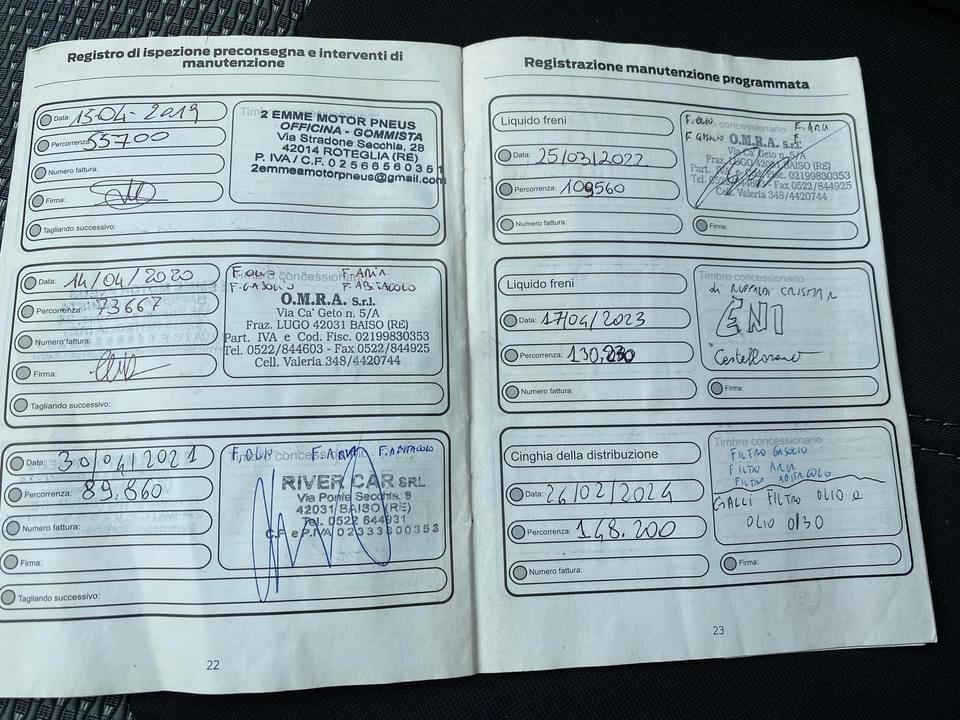 Registro di ispezione preconsegna e interventi di
manutenzione
Data: 15-04-2019
Percorrenza: 55700
Numero fattura:
Firma:
Tagliando successivo:
Timbro
2 EMME MOTOR PNEUS
OFFICINA - GOMMISTA
Via Stradone Secchia, 28
42014 ROTEGLIA (RE)
P. IVA / C.F. 0 2 5 6 6 5 6 0 3 5 1
2emmeamotorpneus@gmail.com
Data: 14/04/2020
Percorrenza: 73667
Numero fattura:
Firma:
Tagliando successivo:
Timbro concessionario
F. OLIO F. ARIA
F. GASOLIO F. ABITACOLO
O.M.R.A. S.r.l.
Via Ca' Geto n. 5/A
Fraz. LUGO 42031 BAISO (RE)
Part. IVA e Cod. Fisc. 02199830353
Tel. 0522/844603 - Fax 0522/844925
Cell. Valeria 348/4420744
Data: 30/04/2021
Percorrenza: 89.860
Numero fattura:
Firma:
Tagliando successivo:
Timbro concessionario
F. OLIO F. ARIA F. ABITACOLO
RIVER CAR SRL
Via Ponte Secchia, 9
42031 BAISO (RE)
Tel. 0522 844931
C.F. e P.IVA 0 2 3 3 3 8 0 0 3 5 3
22
Registrazione manutenzione programmata
Liquido freni
Data: 25/03/2022
Percorrenza: 109560
Numero fattura:
Firma:
Timbro concessionario
F. OLIO F. ARIA
F. GASOLIO
O.M.R.A. S.r.l.
Via Ca' Geto n. 5/A
Fraz. LUGO 42031 BAISO (RE)
Part. IVA e Cod. Fisc. 02199830353
Tel. 0522/ - Fax 0522/844925
Cell. Valeria 348/4420744
Liquido freni
Data: 17/04/2023
Percorrenza: 130.230
Numero fattura:
Firma:
Timbro concessionario
di
ENI
Castellarano
Cinghia della distribuzione
Data: 26/02/2024
Percorrenza: 148.200
Numero fattura:
Firma:
Timbro concessionario
FILTRO GASOLIO
FILTRO ARIA
FILTRO ABITACOLO
GALLI FILTRO OLIO e
OLIO 0/30
23